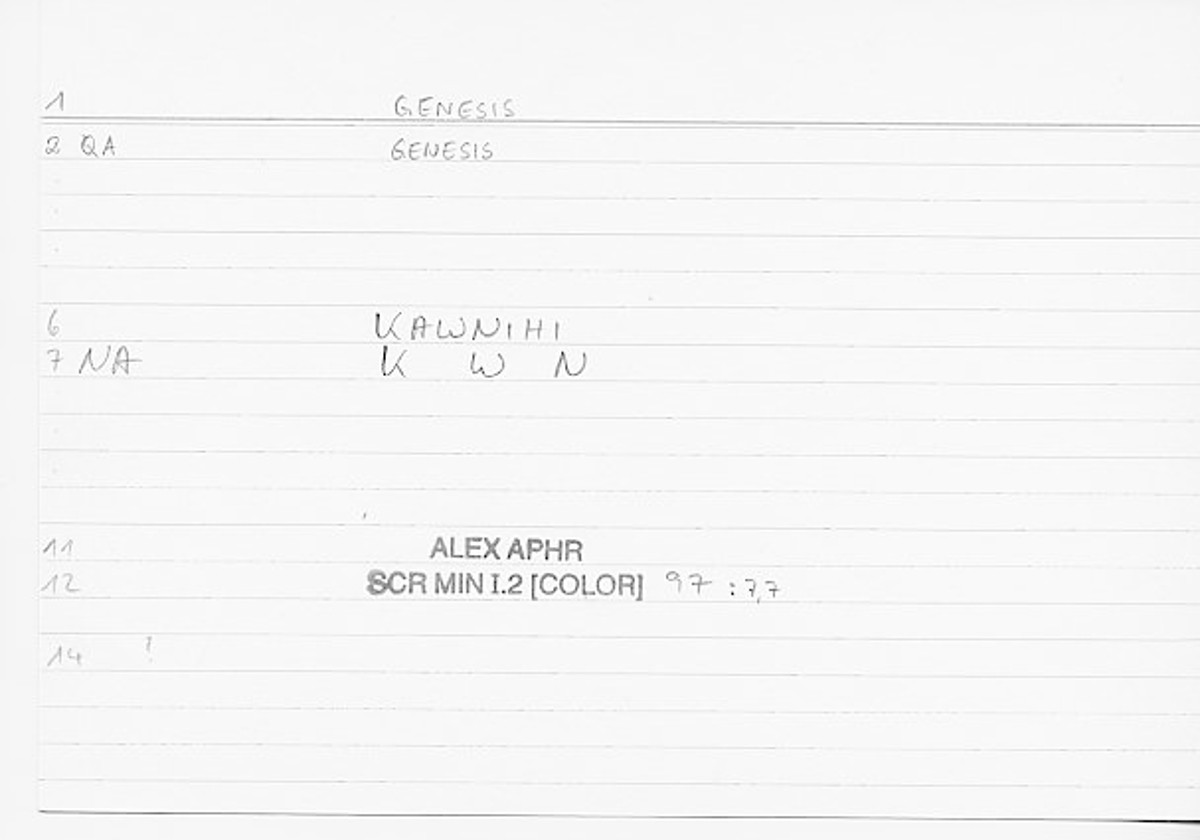 1 GENESIS
2 QA GENESIS
6 KAWNIHI
7 NA K W N
11 ALEX APHR
12 SCR MIN I.2 [COLOR] 97 : 7,7
14 !